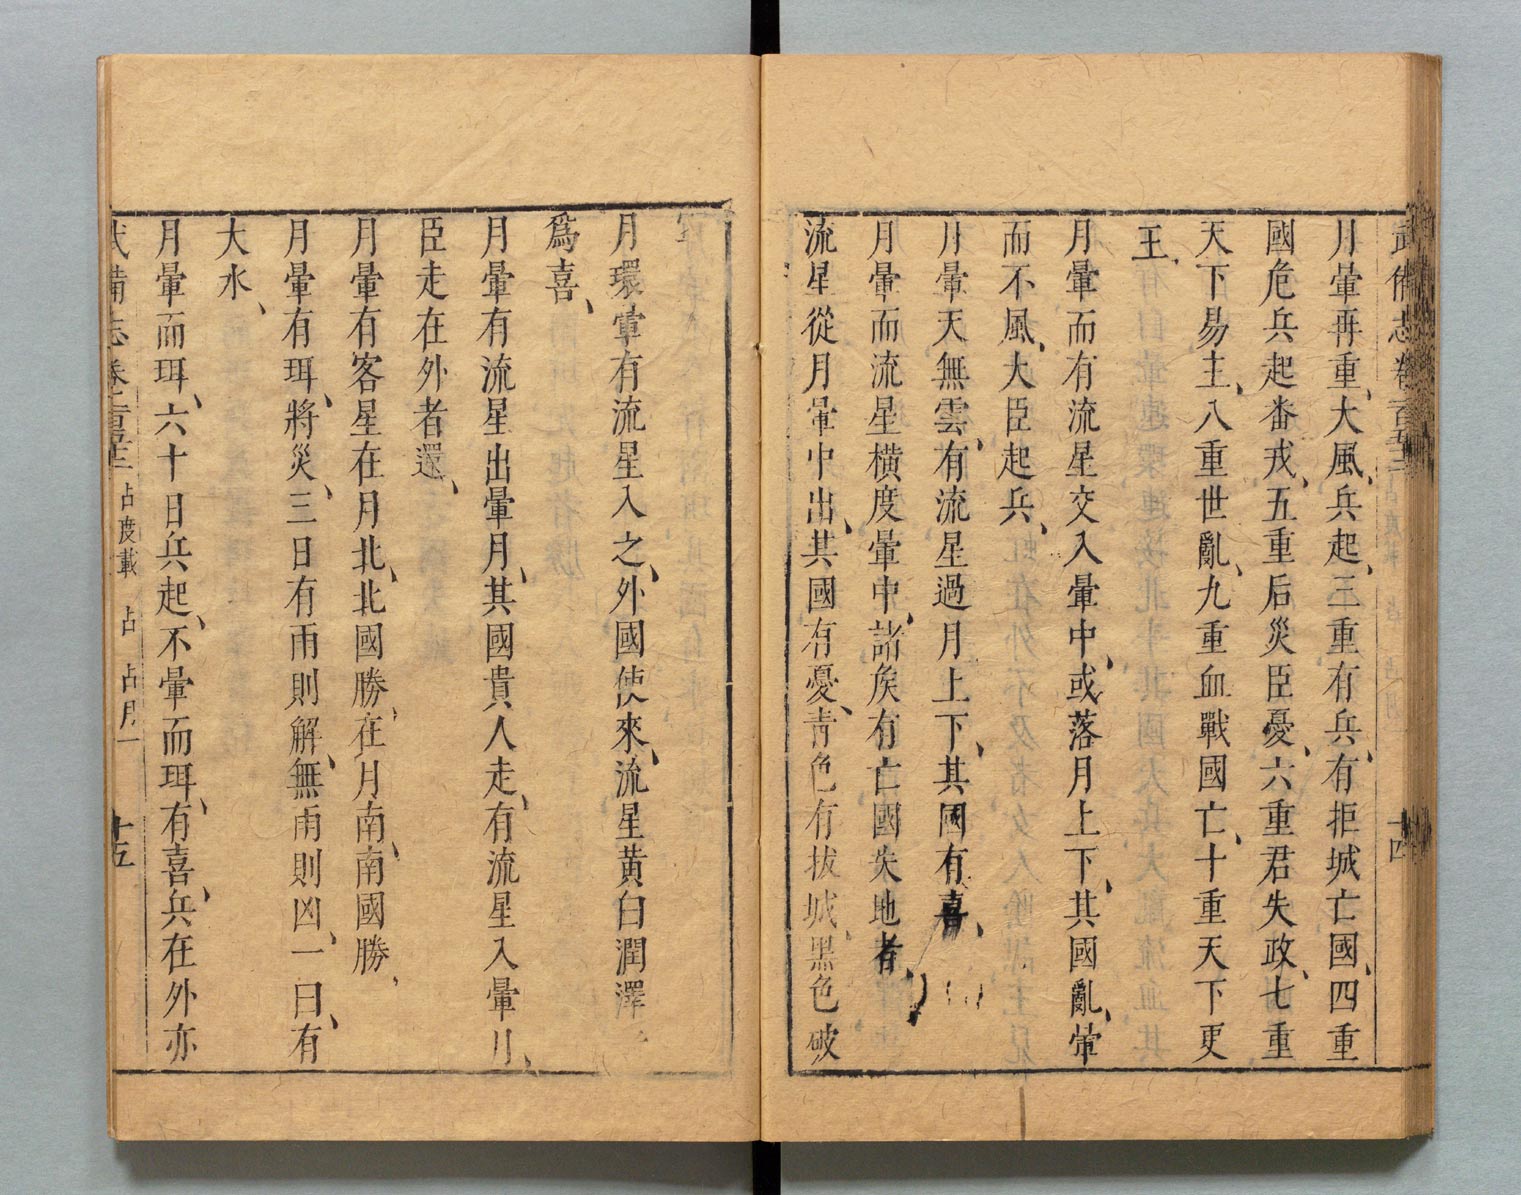 武備志卷一百五十三
十四
月暈再重大風兵起三重有兵有拒城亡國四重
國危兵起番戎五重后災臣憂六重君失政七重
天下易主八重世亂九重血戰國亡十重天下更
王
月暈而有流星交入暈中或落月上下其國亂暈
而不風大臣起兵
月暈天無雲有流星過月上下其國有喜
月暈而流星橫度暈中諸矦有亡國失地者
流星從月暈中出其國有憂青色有拔城黑色破
軍
月環暈有流星入之外國使來流星黃白潤澤
爲喜
月暈有流星出暈月其國貴人走有流星入暈月
臣走在外者還
月暈有客星在月北北國勝在月南南國勝
月暈有珥將災三日有雨則解無雨則凶一曰有
大水
月暈而珥六十日兵起不暈而珥有喜兵在外亦
武備志卷一百五十三 占度載 占 占月一
十五